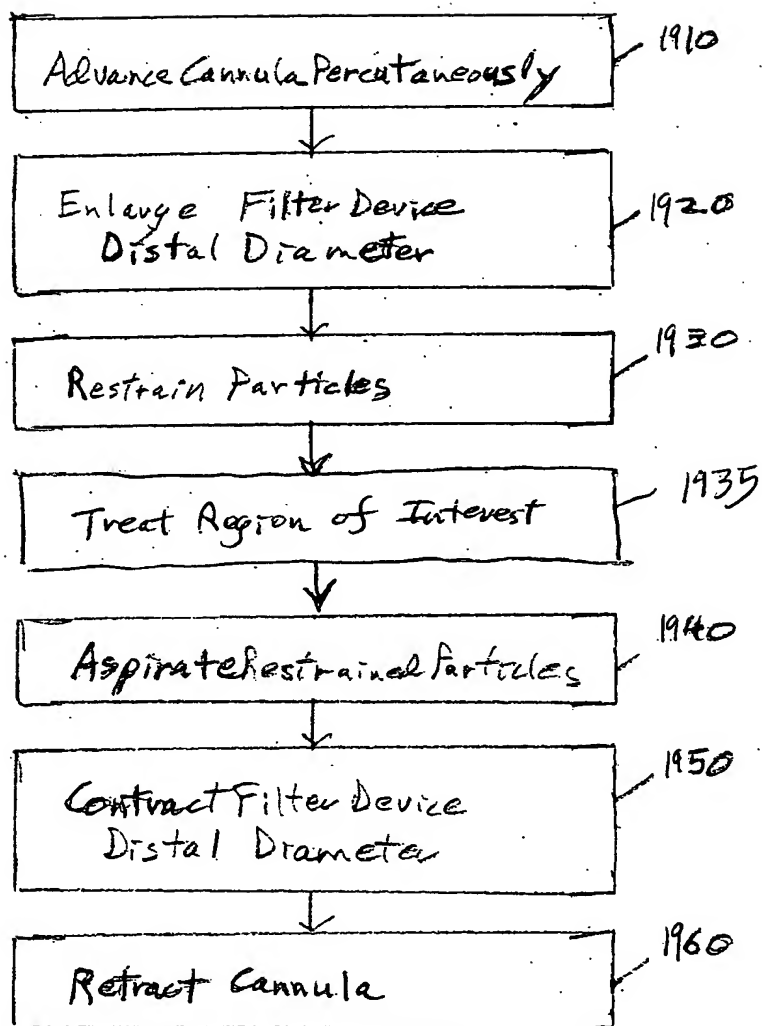 Advance Cannula Percutaneously
1910
Enlarge Filter Device
Distal Diameter
1920
Restrain Particles
1930
Treat Region of Interest
1935
Aspirate Restrained Particles
1940
Contract Filter Device
Distal Diameter
1950
Retract Cannula
1960